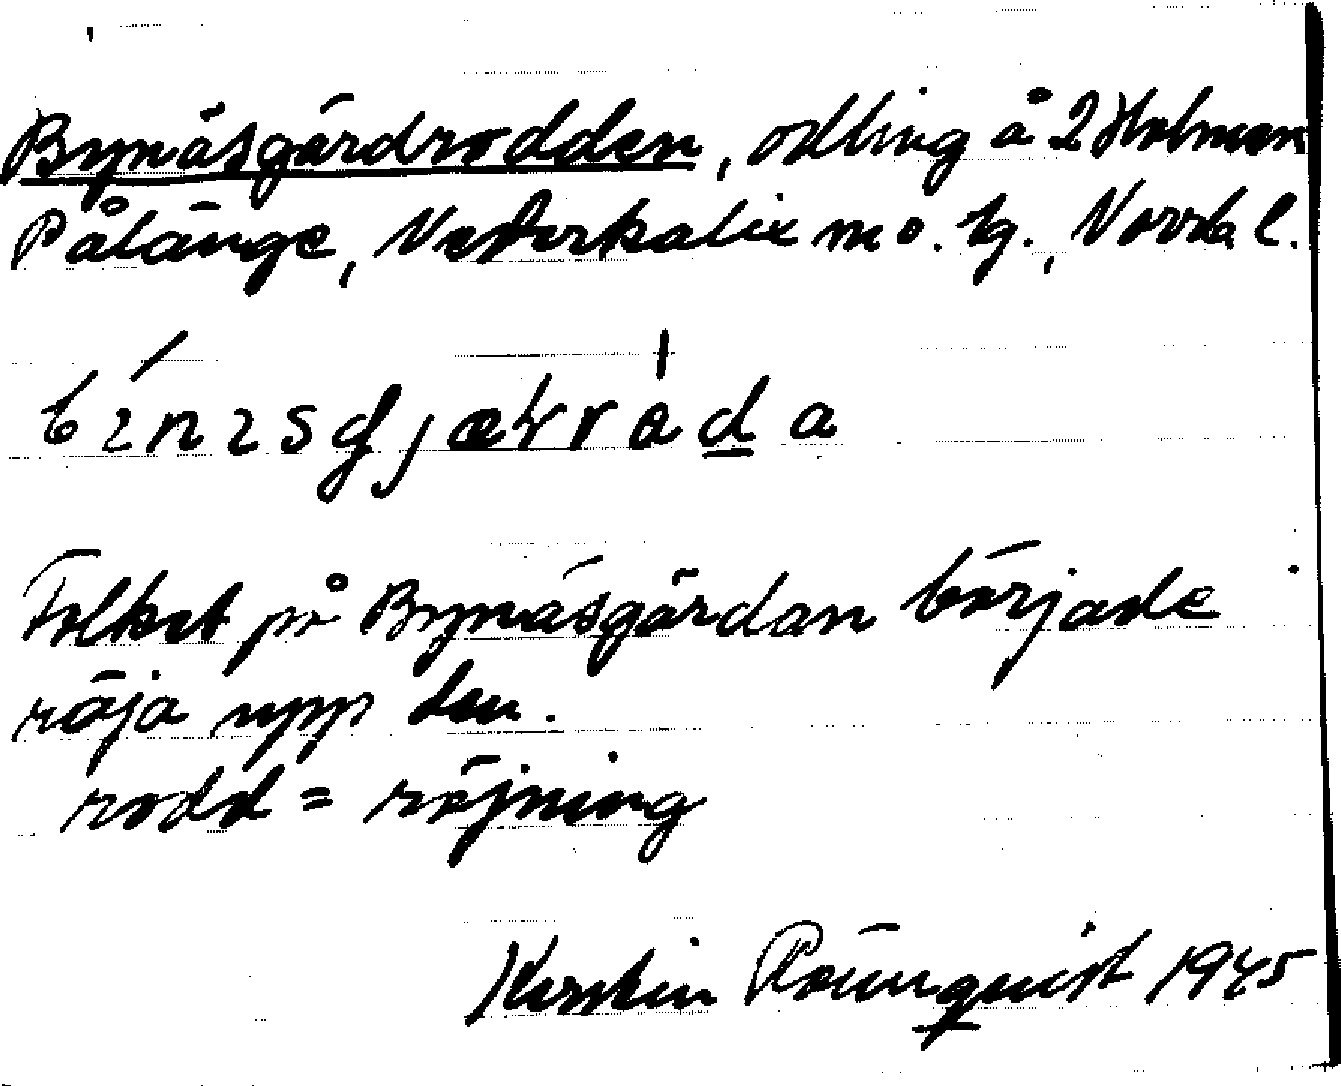 Bynäsgärdrodden, odling å 2 Holmen
Pålänge, Nederkalix m o. tg., Norrb. l.
bínısgjærråda
Folket på Bynäsgärdan började
röja upp den.
rodd = röjning
Kerstin Rönnquist 1945